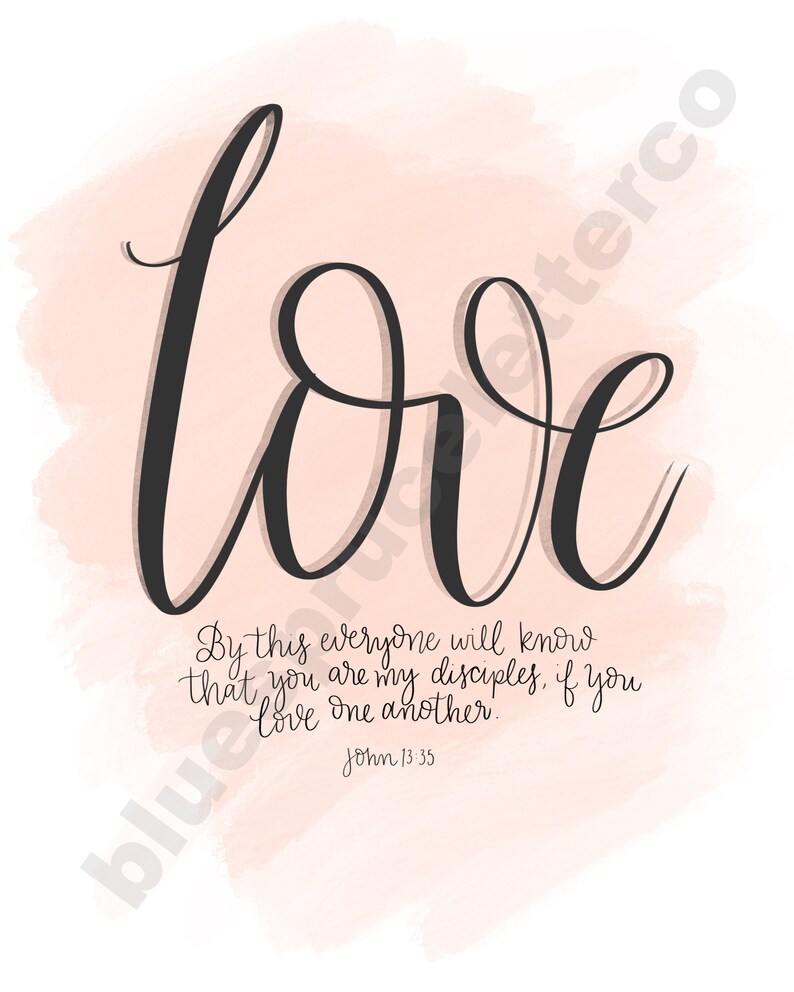 love
By this everyone will know
that you are my disciples, if you
love one another.
John 13:35
bluespruceletterco